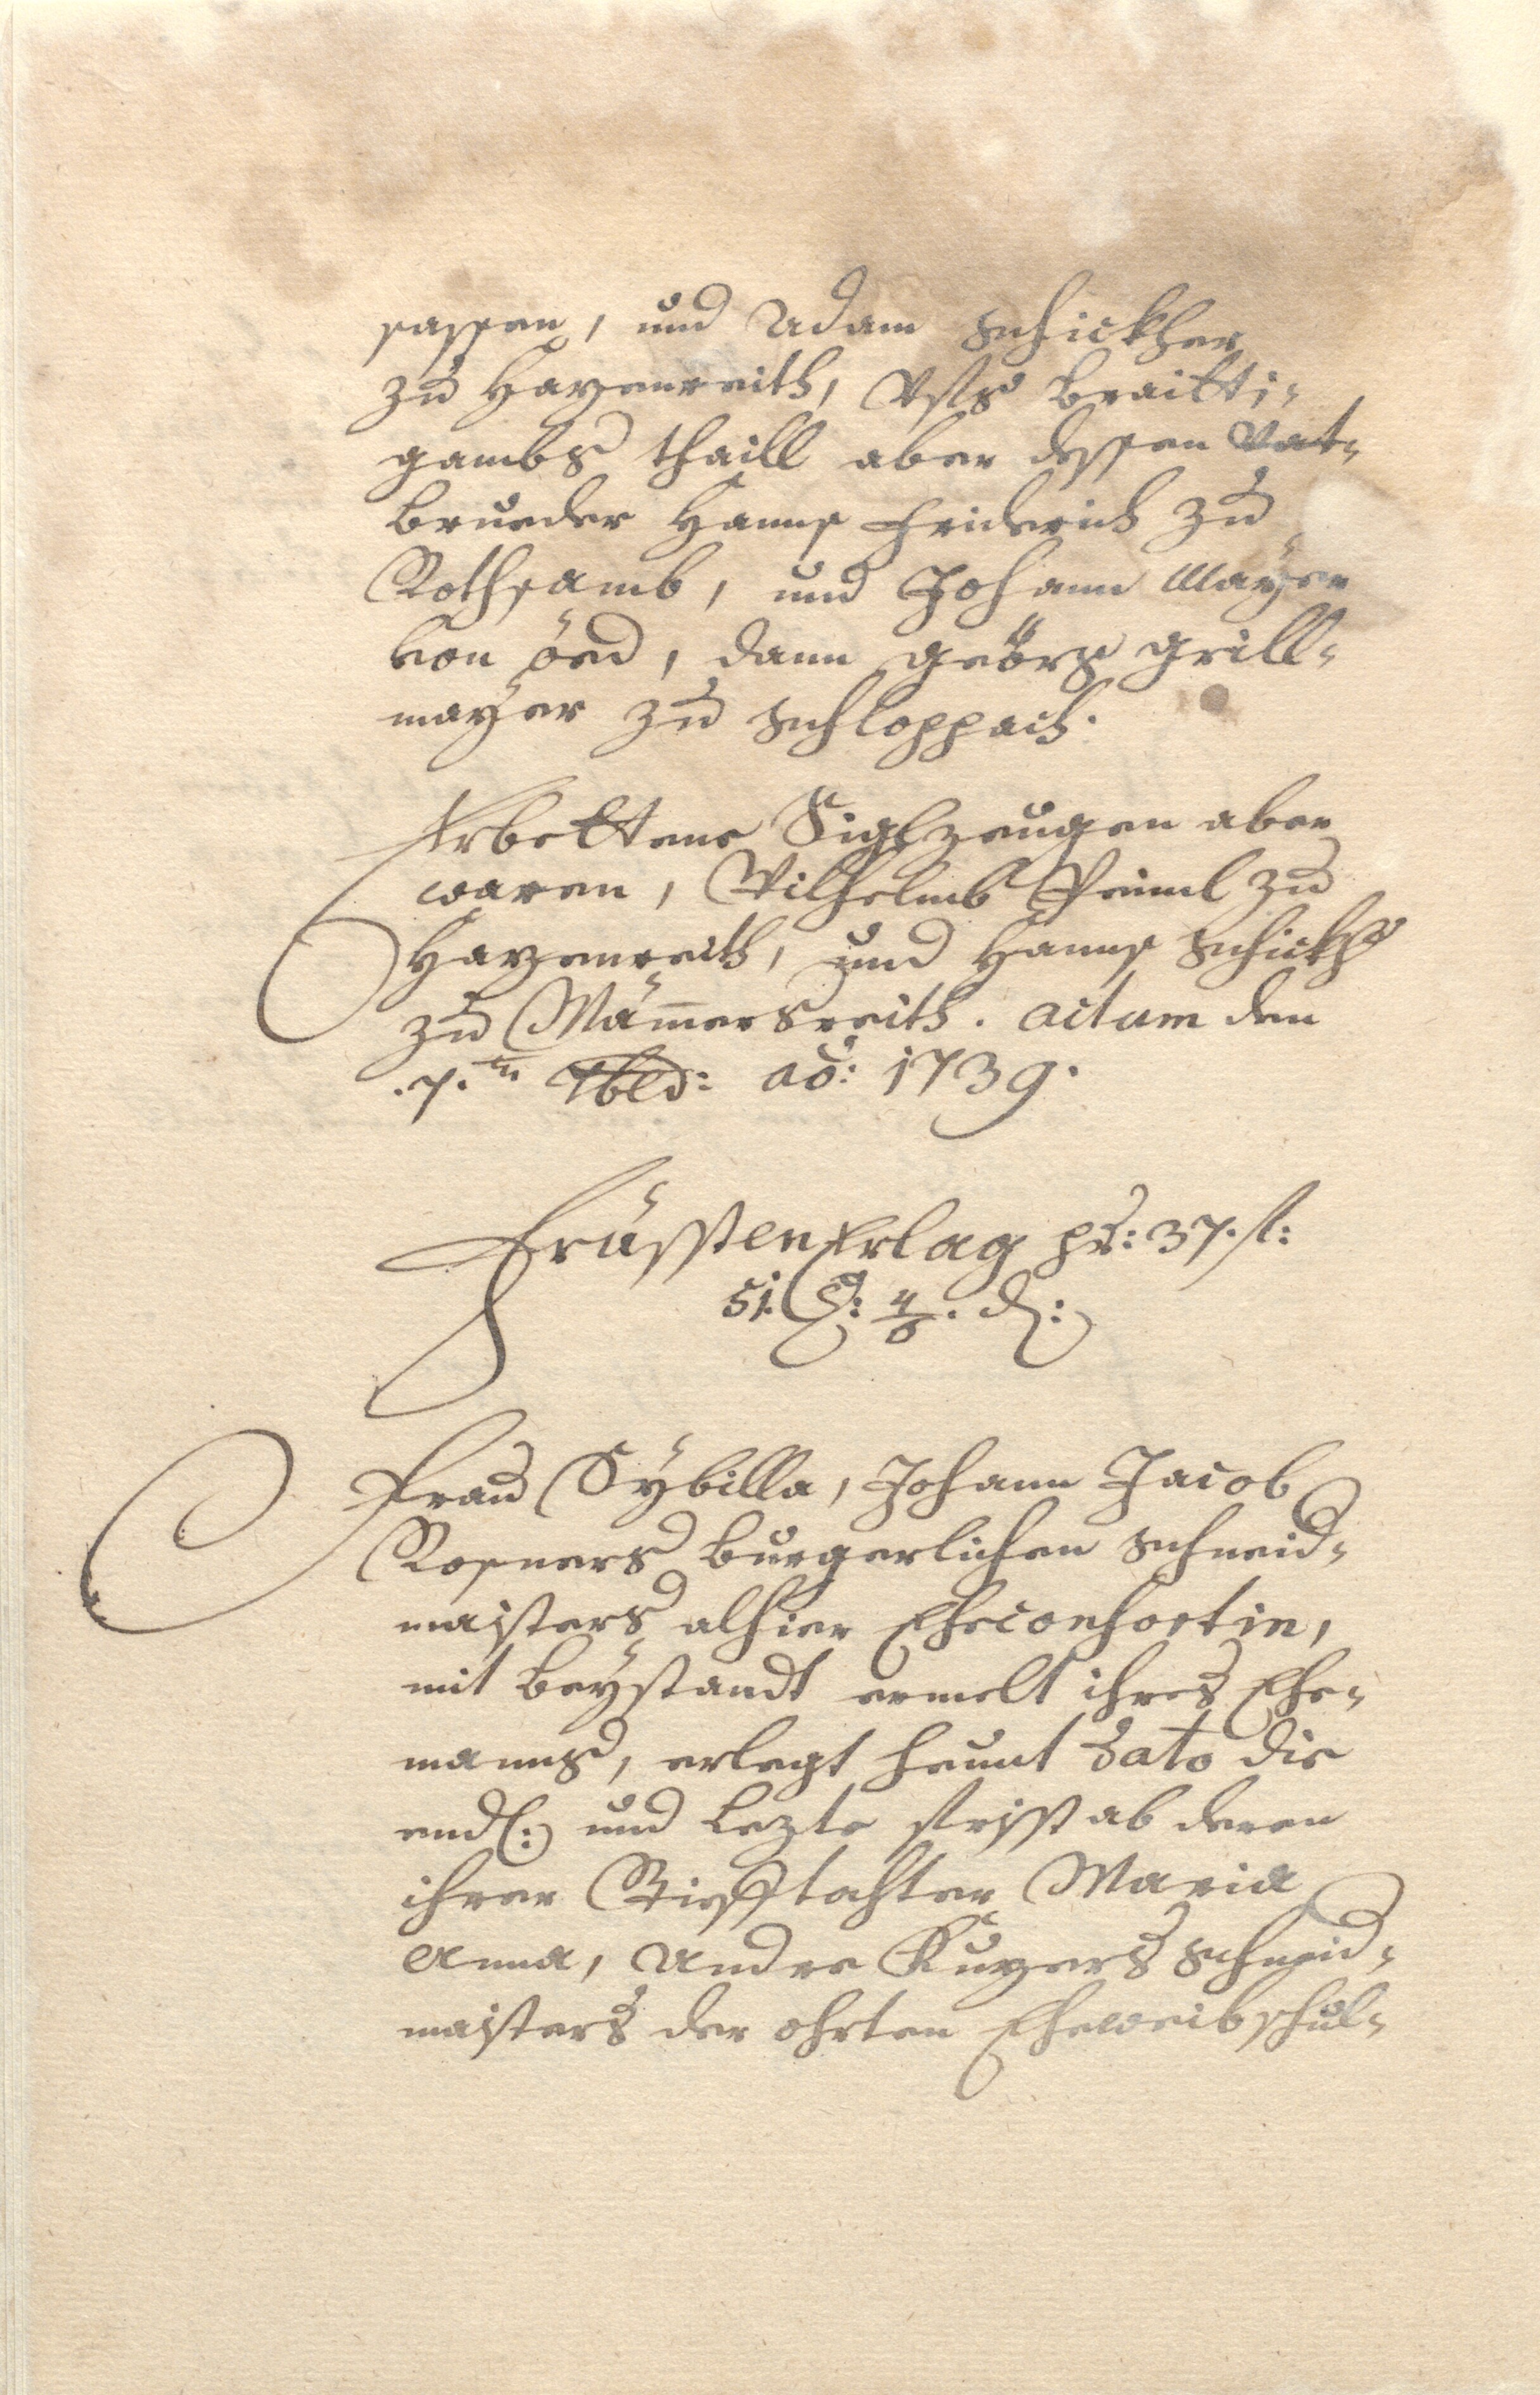 sassen, und Adam Schickher
zu Hazenreith, Uf s. Breitti-
gambs thaill aber dessen Vat-
brueder Hanns Friderich zu
Rothsamb, und Johann Mayer
von öed, dann Geörg Grill-
mayer zu Schloppach.
Erbettene Siglzeugen aber
waren, Wilhelmb Peiml zu
Hazenreith, und Hanns Schickh
zu Mam̄ersreith. Actum den
.7.ten 7bris: ao: 1739.
Früssten Erlag pr: 37. fl:
51. x: 4/8. d:
Frau Sÿbilla, Johann Jacob
Rosners burgerlichen Schneid-
maisters alhier Eheconsortin,
mit beÿstandt ermelt ihres Ehe-
manns, erlegt heunt Dato die
endl: und lezte frist ab deren
ihrer Stieftochter Maria
Anna, Andre Kuzers Schneid-
maisters der ohrten Eheweib schul-